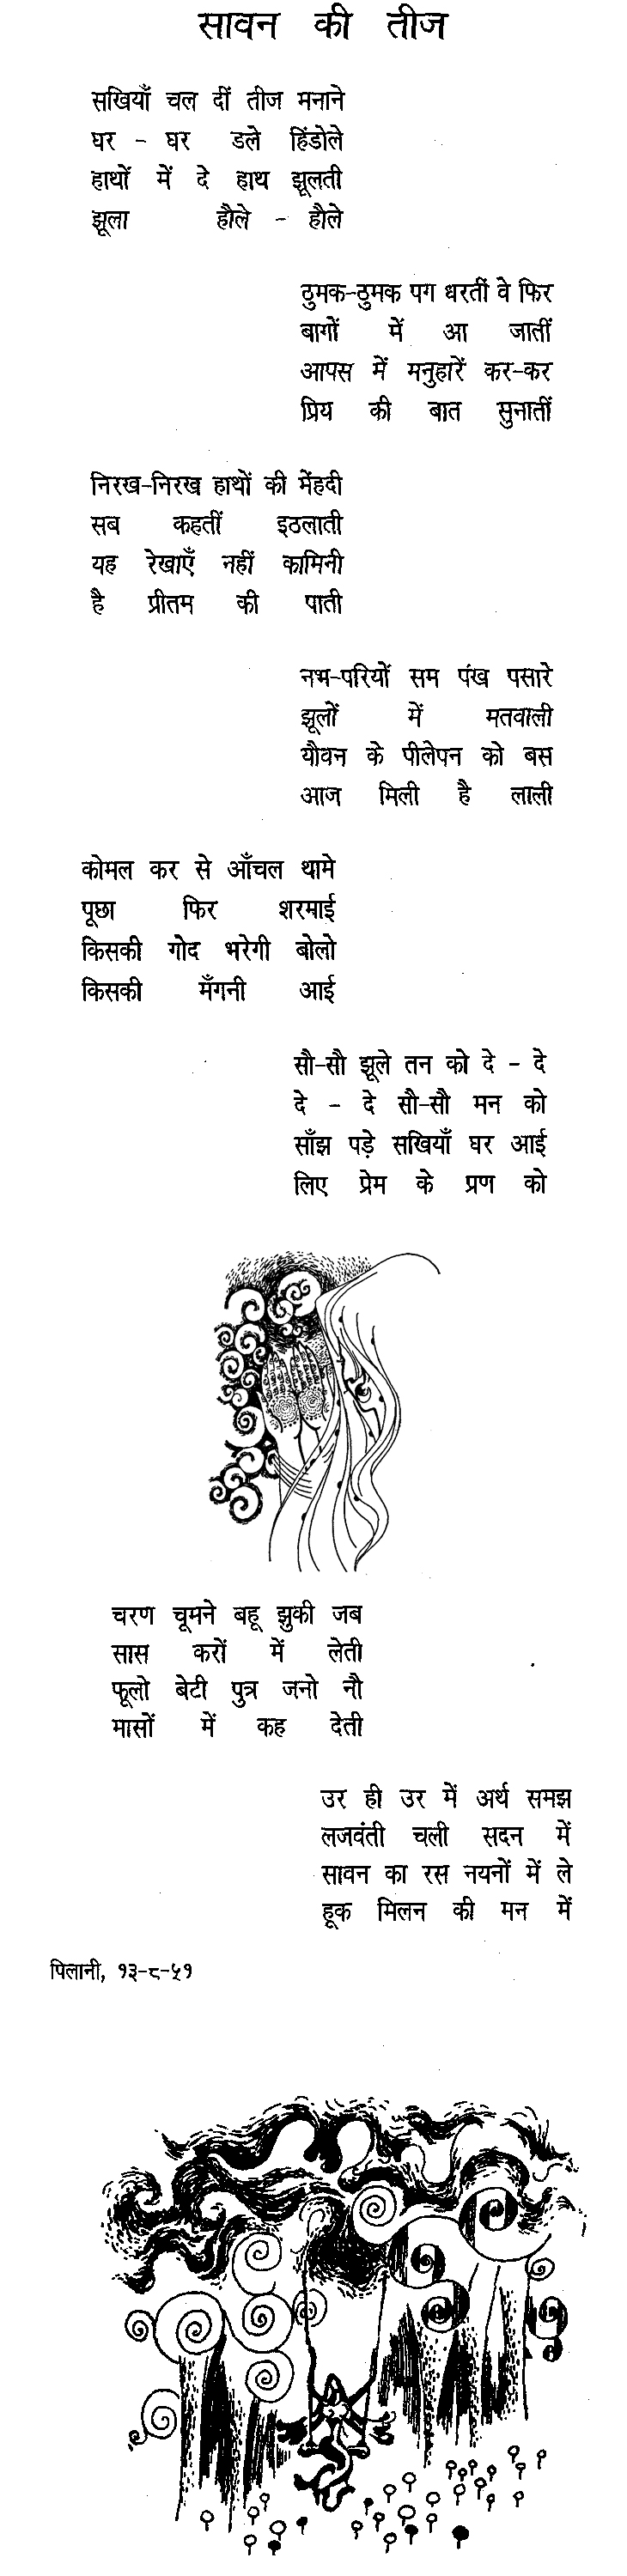 सावन की तीज
सखियाँ चल दीं तीज मनाने
घर - घर डले हिंडोले
हाथों में दे हाथ झूलती
झूला हौले - हौले
ठुमक-ठुमक पग धरतीं वे फिर
बागों में आ जातीं
आपस में मनुहारें कर-कर
प्रिय की बात सुनातीं
निरख-निरख हाथों की मेंहदी
सब कहतीं इठलाती
यह रेखाएँ नहीं कामिनी
है प्रीतम की पाती
नभ-परियों सम पंख पसारे
झूलों में मतवाली
यौवन के पीलेपन को बस
आज मिली है लाली
कोमल कर से आँचल थामे
पूछा फिर शरमाई
किसकी गोद भरेगी बोलो
किसकी मँगनी आई
सौ-सौ झूले तन को दे - दे
दे - दे सौ-सौ मन को
साँझ पड़े सखियाँ घर आई
लिए प्रेम के प्रण को
चरण चूमने बहू झुकी जब
सास करों में लेती
फूलो बेटी पुत्र जनो नौ
मासों में कह देती
उर ही उर में अर्थ समझ
लजवंती चली सदन में
सावन का रस नयनों में ले
हूक मिलन की मन में
पिलानी, १३-८-५१